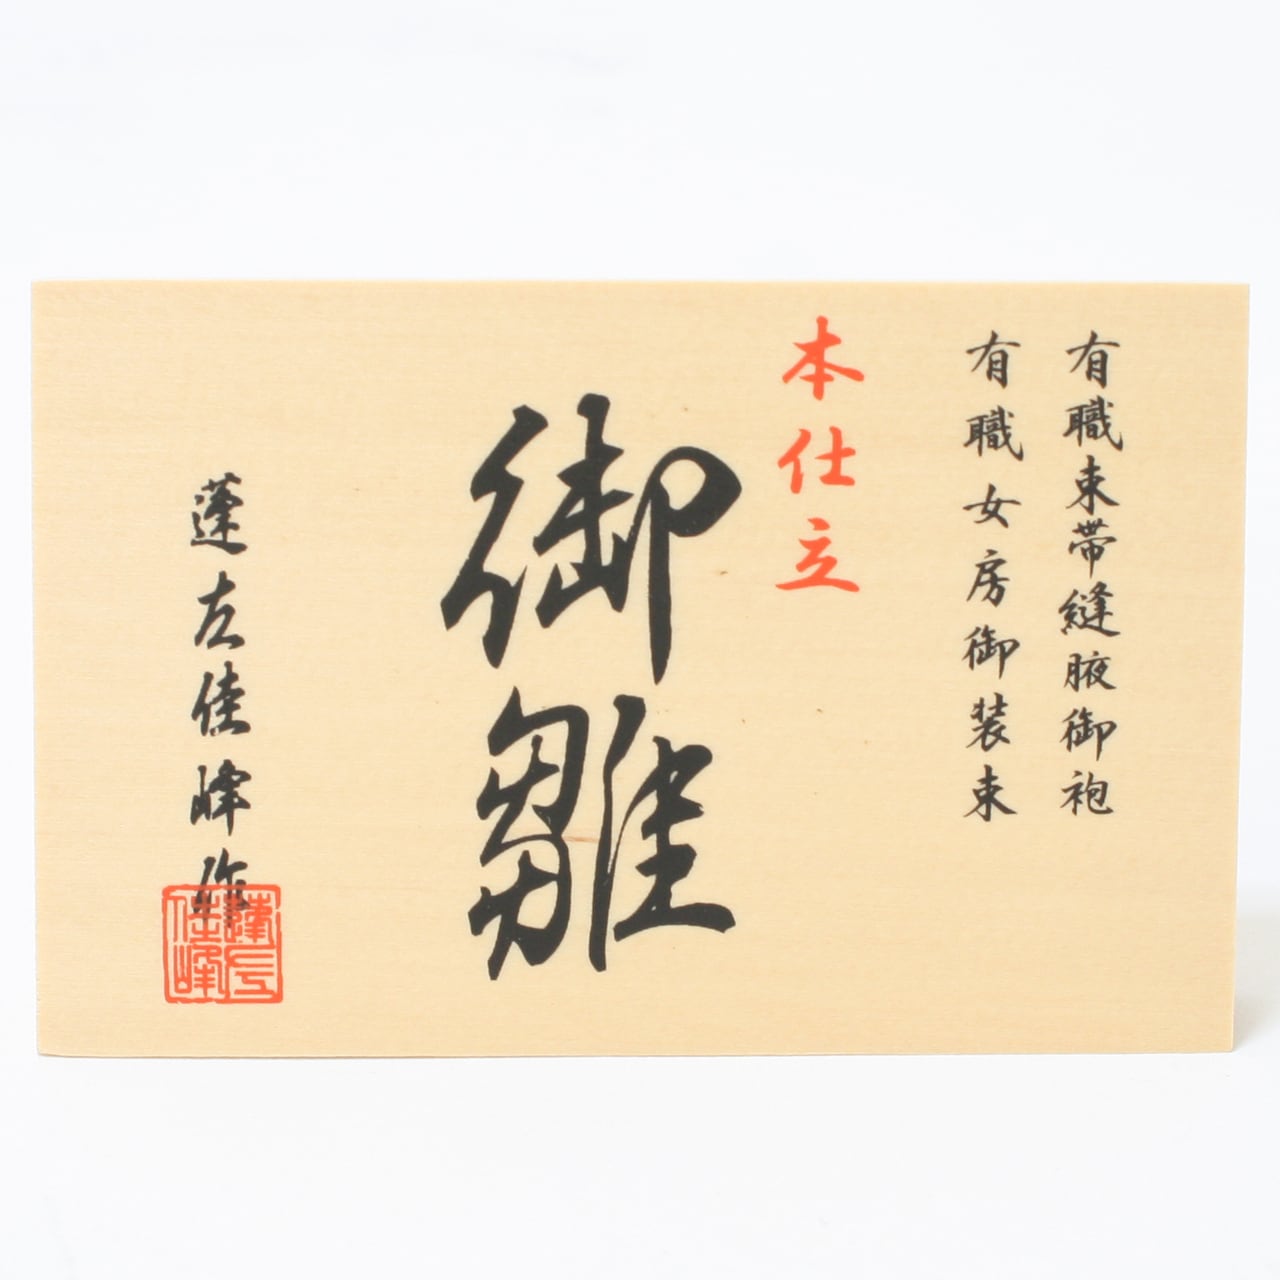 有職束帯縫腋御袍
有職女房御装束
本仕立
御雛
蓬左佳峰作
蓬左
佳峰